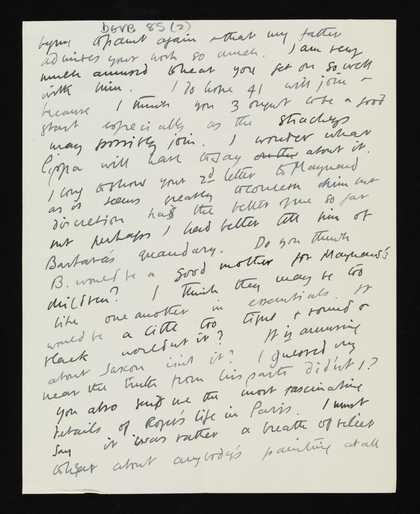 DGVB 85 (2)
to paint again & that my father
admires your work so much. I am very
much amused to hear you get on so well
with him. I do hope 41 will join &
because I think you 3 ought to be a good
start especially as the Stracheys
may possibly join. I wonder what
Pippa will have to say about it.
I long to show your 2nd letter to Maynard
as it seems greatly to concern him but
discretion has had the better of me so far
but perhaps I had better tell him of
Barbara's quandary. Do you think
B. would be a good mother for Maynard's
children? I think they may be too
like one another in essentials. It
would be a little too tight & round &
black wouldn't it? It is amusing
about Saxon isn't it? I guessed very
near the truth from his parts didn't I?
You also send me the most fascinating
details of Roger's life in Paris. I must
say it was rather a breath of relief
to hear about anybody's painting at all